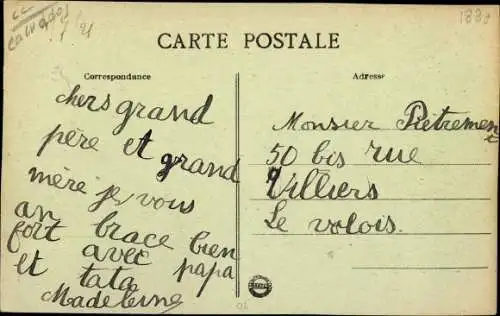 Calvados
CARTE POSTALE
Correspondance
Adresse
chers grand
père et grand
mère je vous
an brace bien
fort avec papa
et tata
Madeleine
Monsieur Pietrement
50 bis rue
Villiers
Le valois.